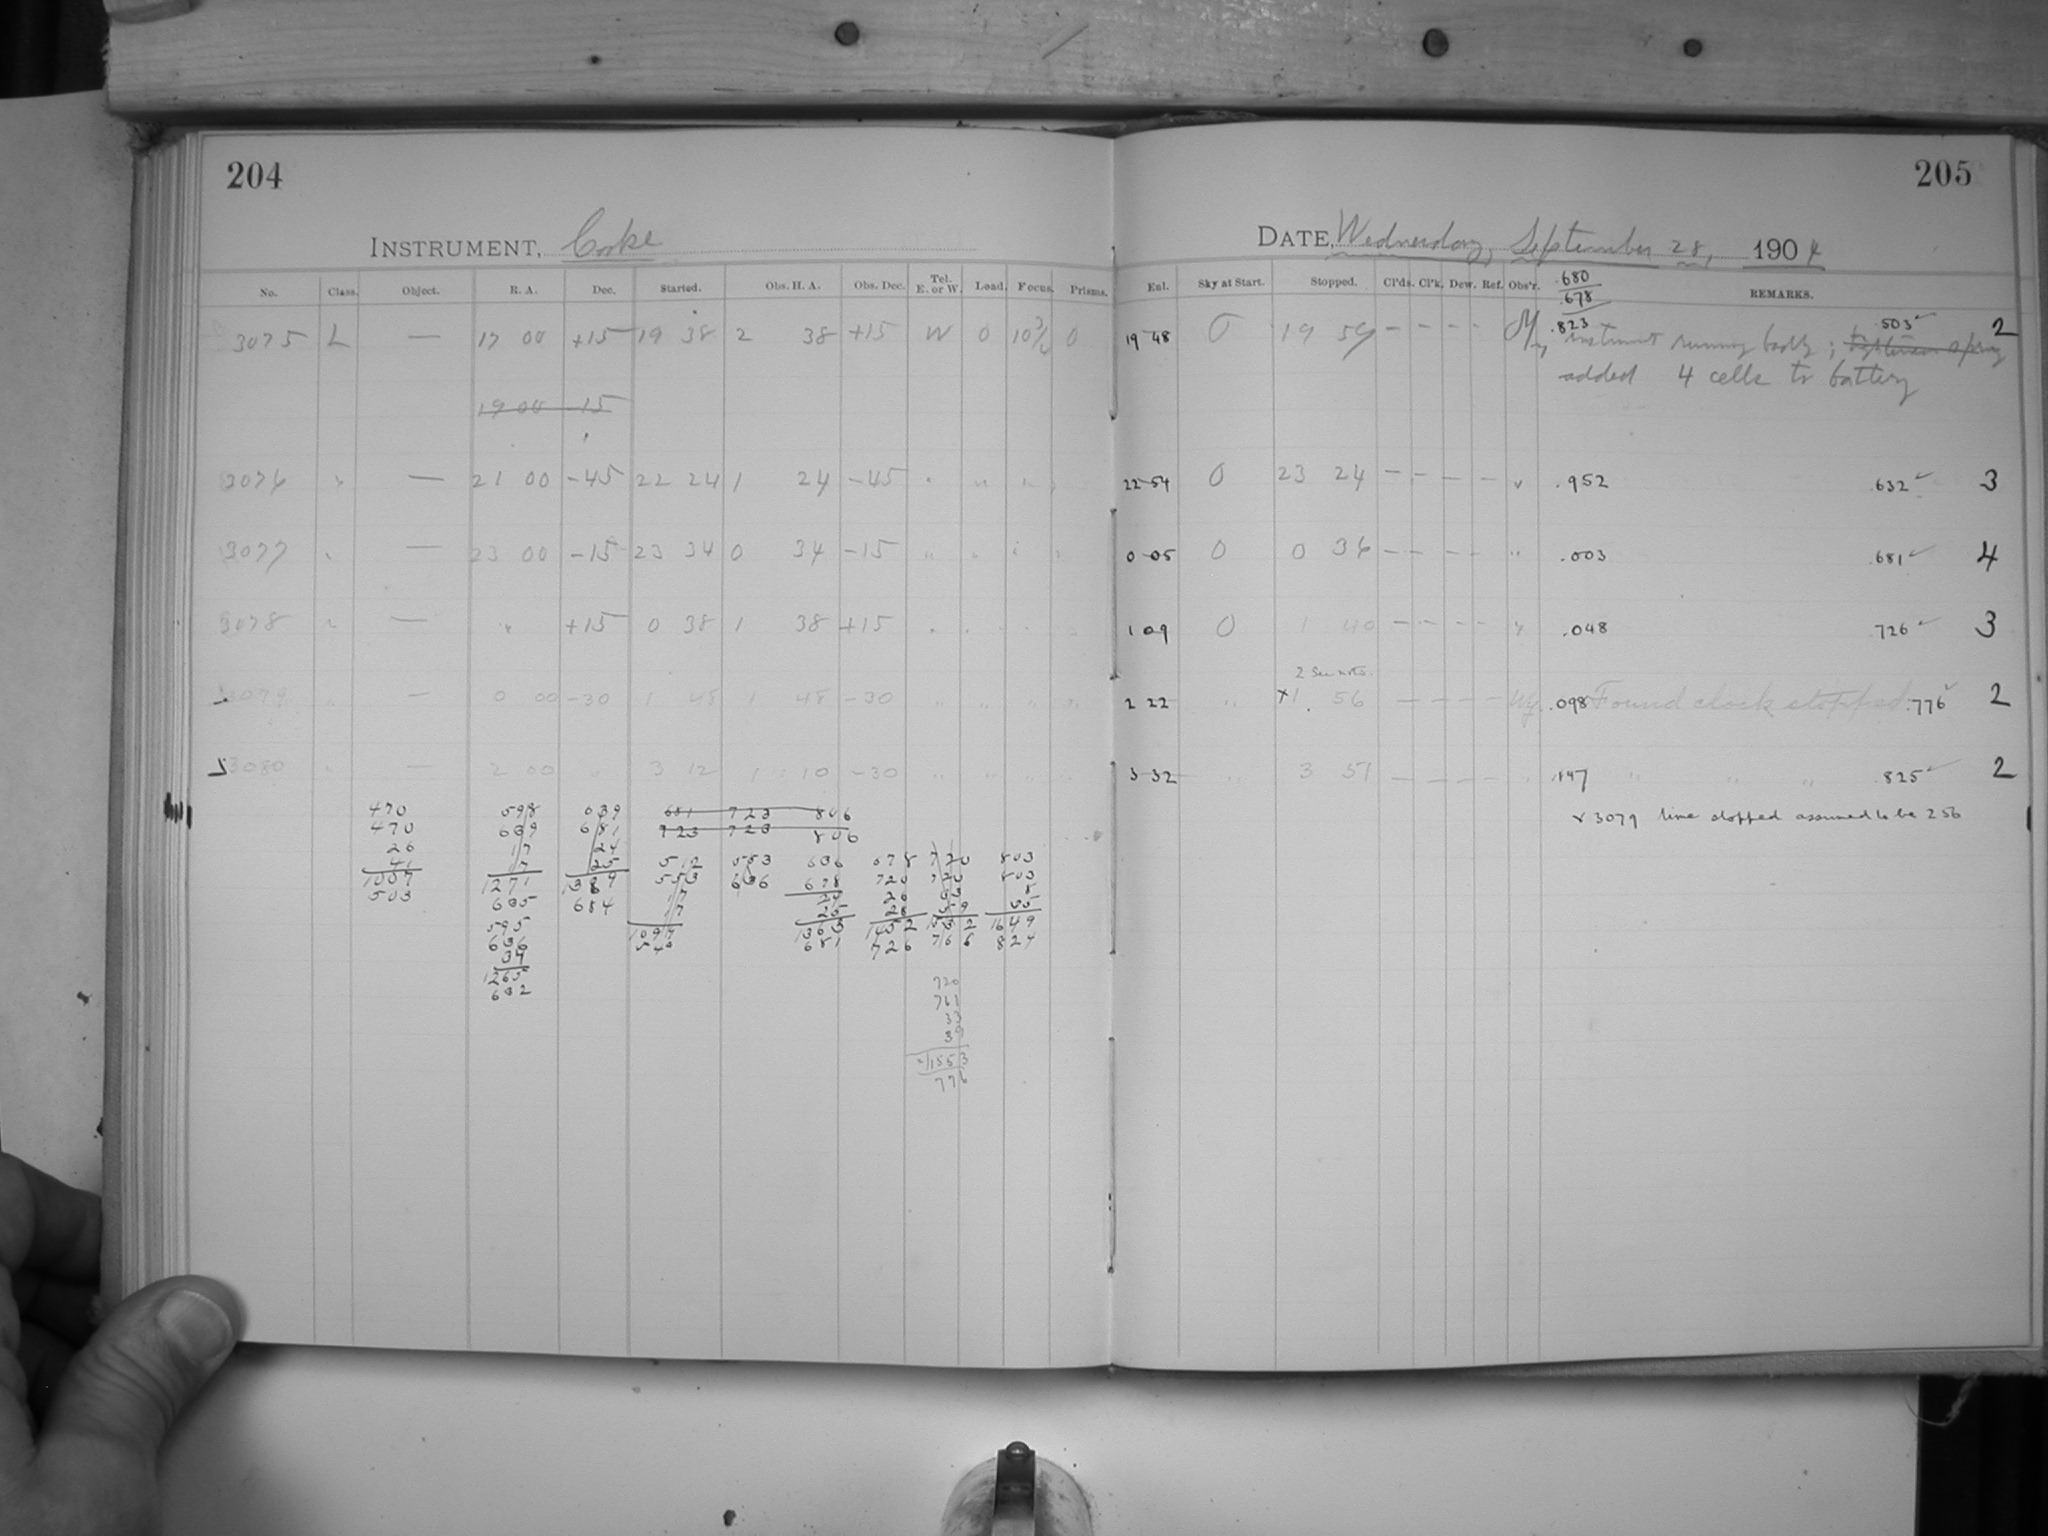 204
INSTRUMENT, Cooke
No. Class. Object. R. A. Dec. Started. Obs. H. A. Obs. Dec. Tel. E. or W. Load. Focus. Prisms.
3075 L — 17 00 +15 19 38 2 38 +15 W 0 10 3/4 0
19 00 -15
3076 " — 21 00 -45 22 24 1 24 -45 " " "
3077 " — 23 00 -15 23 34 0 34 -15 " " "
3078 " — " +15 0 38 1 38 +15 " " "
3079 " — 0 00 -30 1 48 1 48 -30 " " " "
3080 " — 2 00 " 3 12 1 10 -30 " " " "
470 598 039 681 723 806
470 639 681 723 723 806
26 17 24 512 553 636 678 720 803
41 17 25 553 636 678 720 720 803
1007 1271 1369 17 24 26 53 8
503 635 684 17 25 28 59 35
595 1097 1363 1452 1552 1649
636 549 681 726 776 824
34
1265
632
720
761
33
39
1553
776
205
DATE, Wednesday, September 28, 1904
Enl. Sky at Start. Stopped. Cl'ds. Cl'k. Dew. Ref. Obs'r. REMARKS.
.680
.678
19 48 0 19 59 — — — — .823 .503 ✓ 2
instrument running badly; tighten spring
added 4 cells to battery
22 54 0 23 24 — — — — " .952 .632 ✓ 3
0 05 0 0 36 — — — — " .003 .681 ✓ 4
1 09 0 1 40 — — — — " .048 .726 ✓ 3
2 See note.
2 22 " x1 56 — — — — .098 Found clock stopped .776 ✓ 2
3 32 " 3 51 — — — — " .147 " " " .825 ✓ 2
x 3079 time stopped assumed to be 2 56